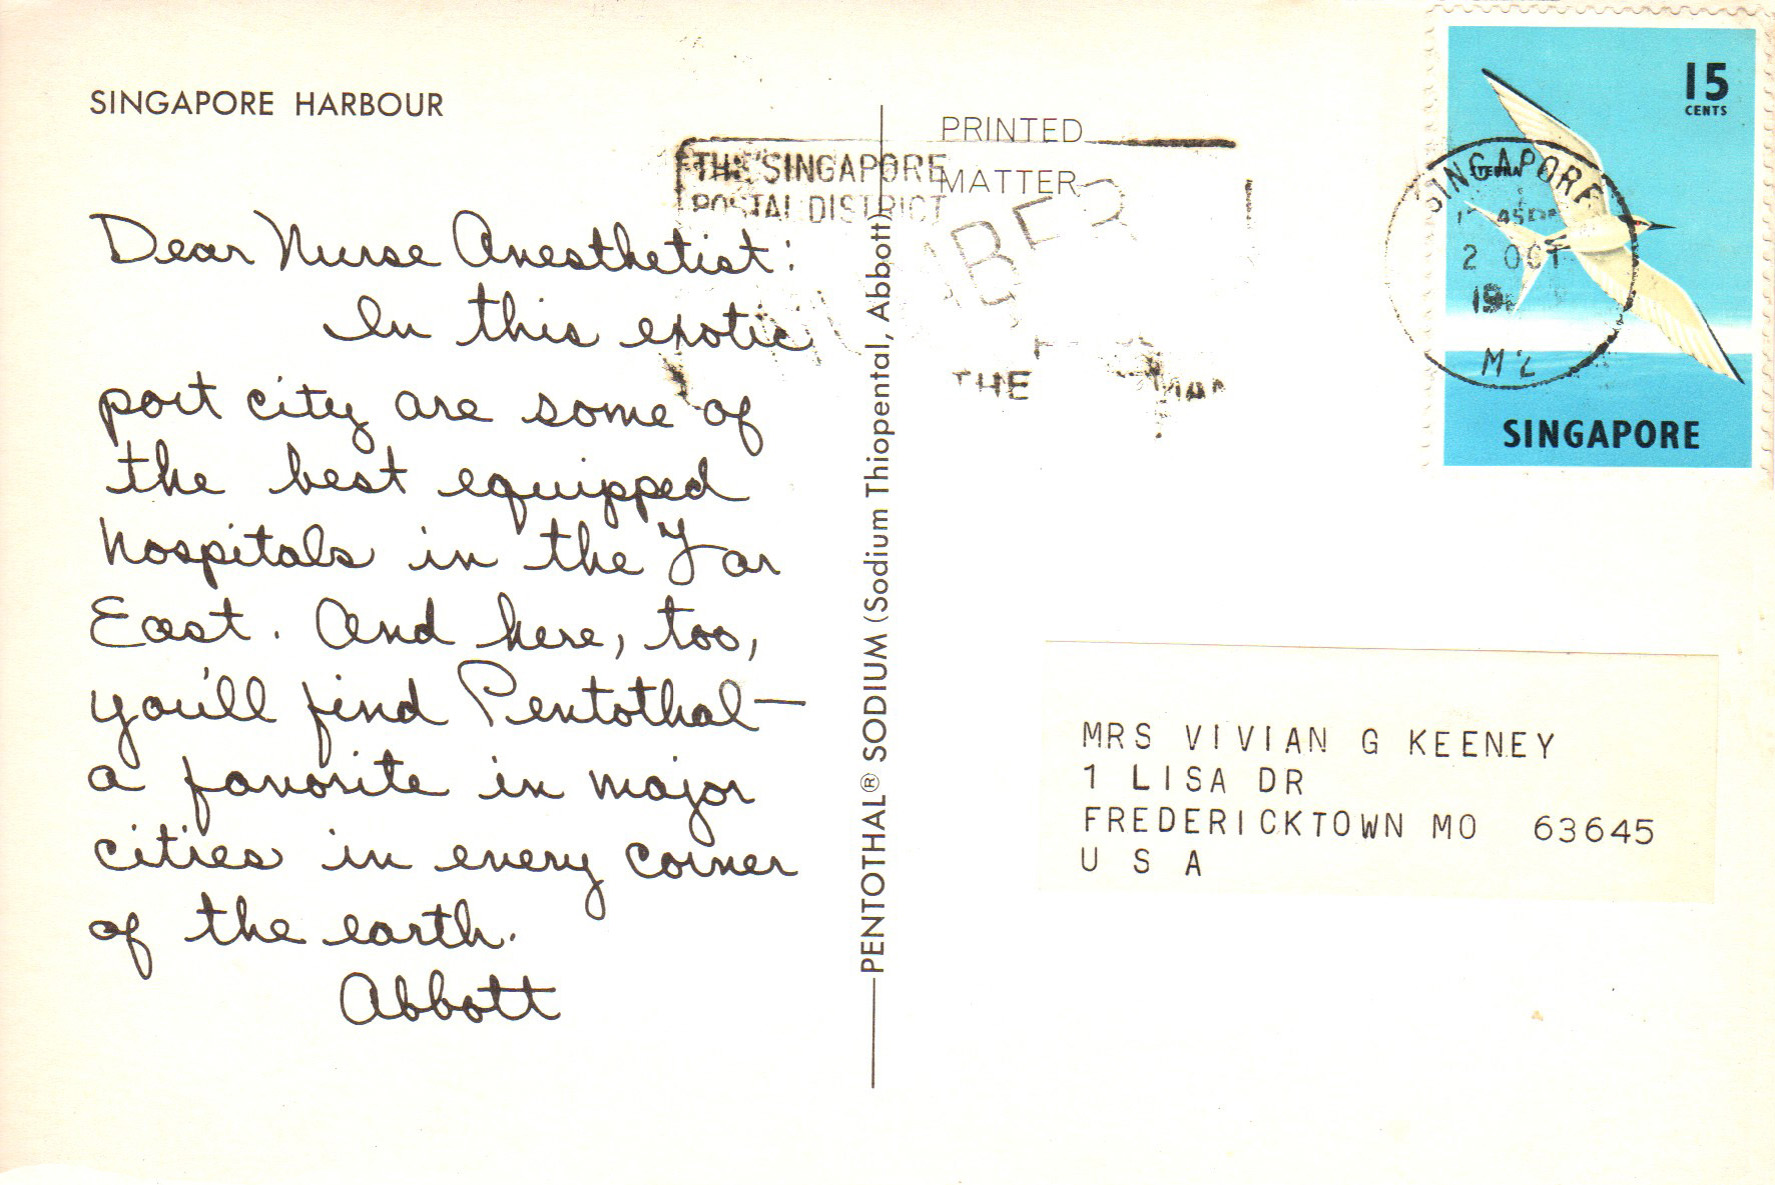 SINGAPORE HARBOUR
Dear Nurse Anesthetist:
In this exotic
port city are some of
the best equipped
hospitals in the Far
East. And here, too,
you'll find Pentothal—
a favorite in major
cities in every corner
of the earth.
Abbott
PENTOTHAL® SODIUM (Sodium Thiopental, Abbott)
PRINTED
MATTER
THE SINGAPORE
POSTAL DISTRICT
NUMBER
THE
15
CENTS
STERNA
SINGAPORE
SINGAPORE
2 OCT
19
MRS VIVIAN G KEENEY
1 LISA DR
FREDERICKTOWN MO 63645
U S A